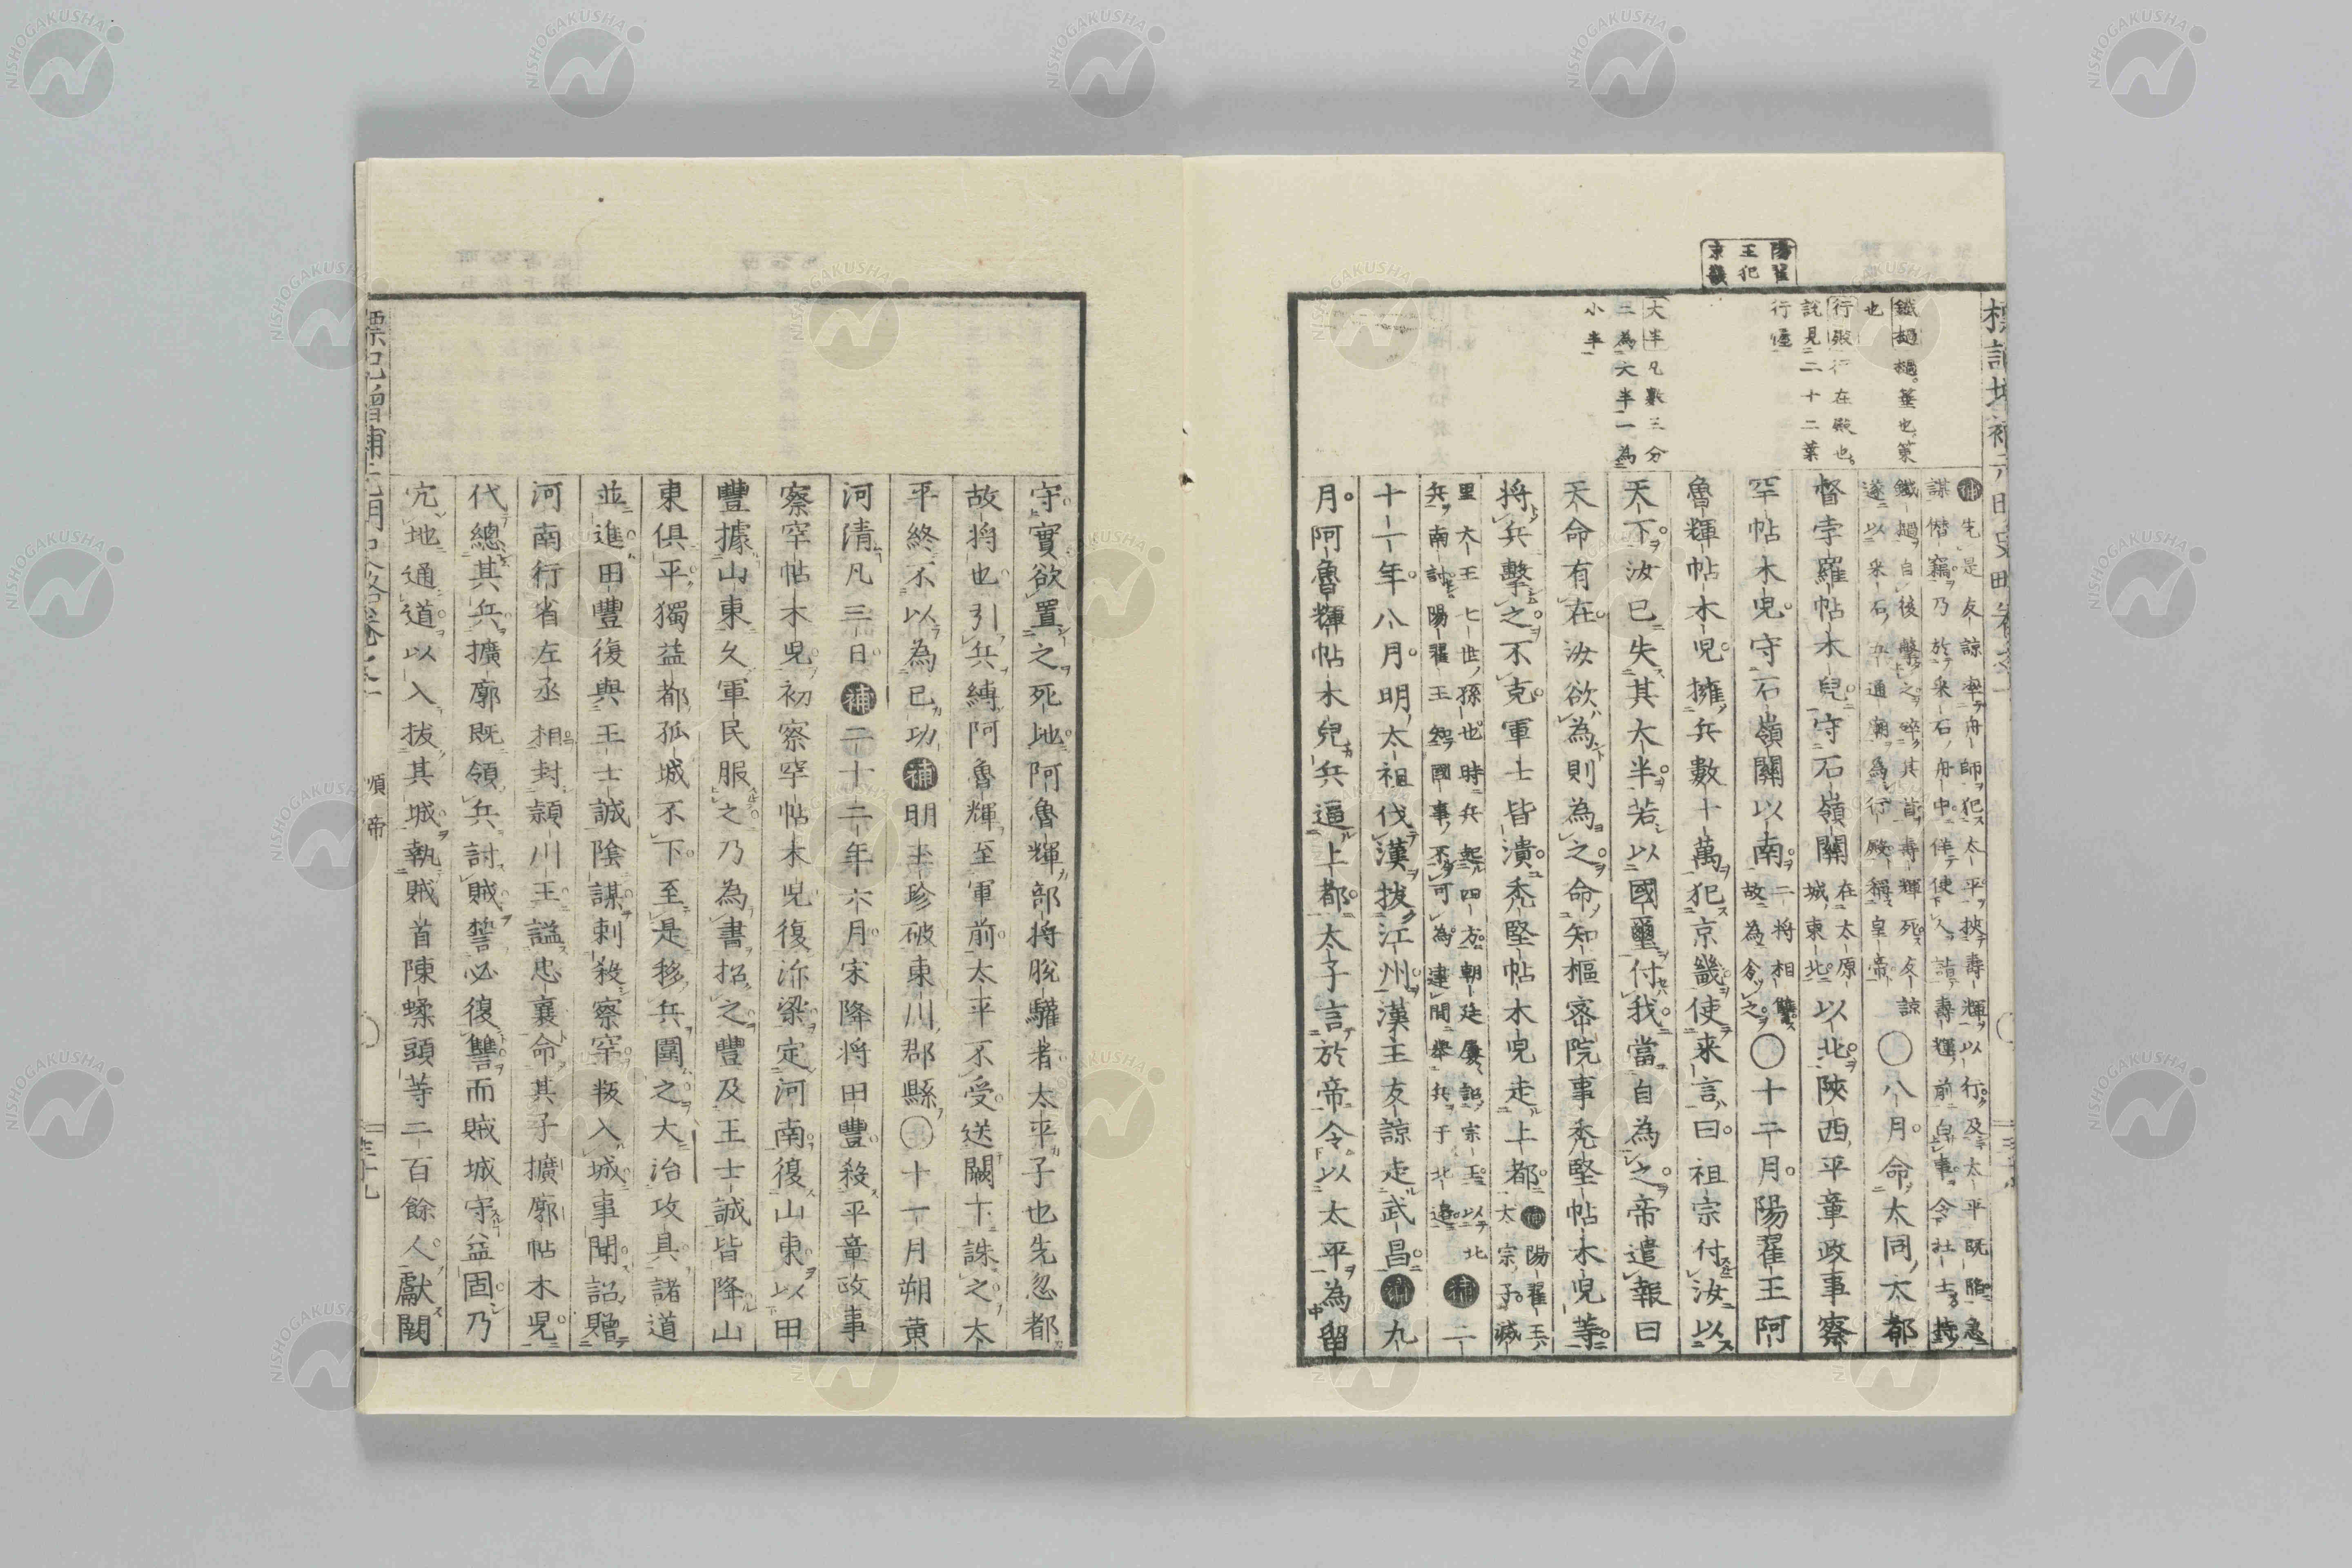 陽翟
王犯
京畿
鐵撾撾。箠也。策
也
行殿行在殿也。
説見二十二葉
行𫝶
大半凡數三分
二為大半一為
小半
補先是友諒率舟師犯太平挾壽輝以行及太平既陷急
謀僭竊乃於采石舟中佯使人詣壽輝前白事令壯士持
鐵撾自後擊之碎其首壽輝死友諒
遂以采石五通廟為行殿稱皇帝
〇八月命大同大都
督孛羅帖木兒守石嶺關在太原
城東北以北陝西平章政事察
罕帖木兒守石嶺關以南二將相讐
故為令之〇十二月陽翟王阿
魯輝帖木兒擁兵數十萬犯京畿使来言曰祖宗付汝以
天下汝已失其大半若以國璽付我當自為之帝遣報曰
天命有在汝欲為則為之命知樞密院事禿堅帖木兒等
将兵擊之不克軍士皆潰禿堅帖木兒走上都補陽翟王
太宗子滅
里大王七世孫也時兵起四方朝廷屢詔宗王以北
兵南討陽翟王怨國事不可為違間舉兵于北邊
補二
十一年八月明太祖伐漢拔江州漢主友諒走武昌補九
月阿魯輝帖木兒兵逼上都太子言於帝令以太平為留
守實欲置之死地阿魯輝部将脫驩者太平子也先忽都
故将也引兵縛阿魯輝至軍前太平不受送闕下誅之太
平終不以為已功補明玉珍破東川郡縣〇十一月朔黄
河清凡三日補二十二年六月宋降将田豐殺平章政事
察罕帖木兒初察罕帖木兒復汴梁定河南復山東以田
豐據山東久軍民服之乃為書招之豐及王士誠皆降山
東俱平獨益都孤城不下至是移兵圍之大治攻具諸道
並進田豐復與王士誠陰謀刺殺察罕叛入城事聞詔贈
河南行省左丞相封頴川王謚忠襄命其子擴廓帖木兒
代總其兵擴廓既領兵討賊誓必復讐而賊城守益固乃
宂地通道以入拔其城執賊首陳蝚頭等二百餘人獻闕
順帝